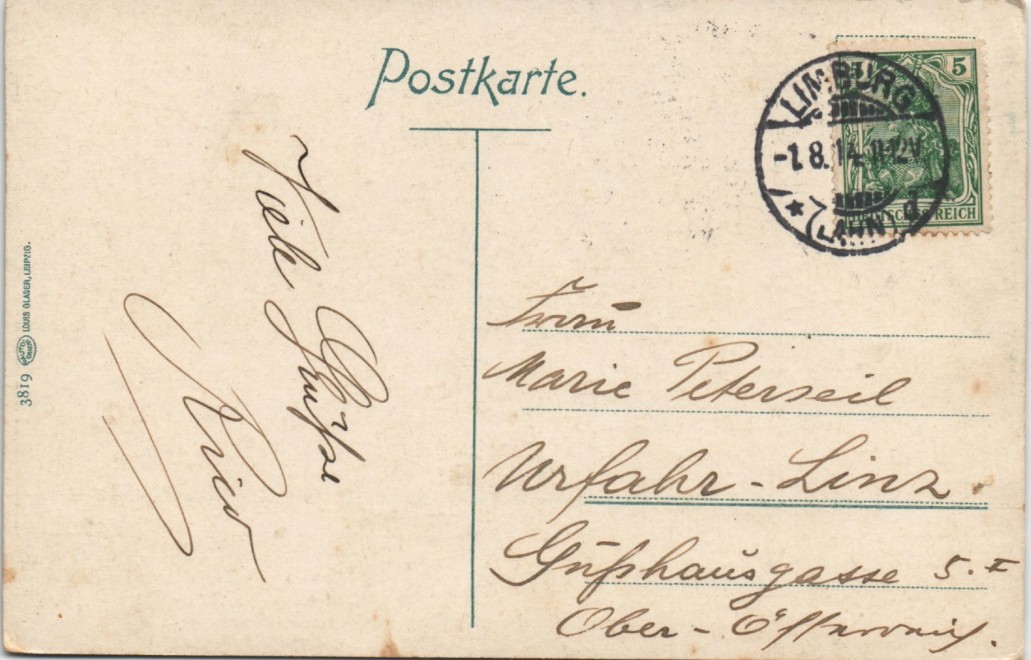 Postkarte.
LIMBURG
-1.8.14. 11-12V
* (LAHN) d
5
DEUTSCHES REICH
Viele Grüße
Frau
Marie Peterseil
Urfahr - Linz.
Gußhausgasse 5. I
Ober - Österreich.
3819 LOUIS GLASER, LEIPZIG.